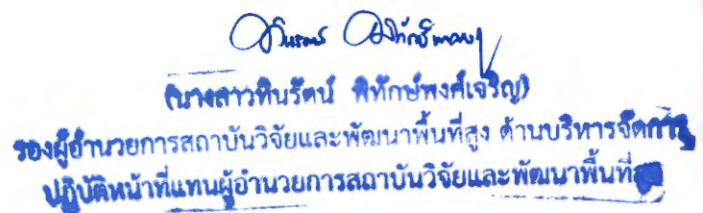 (นางสาวทินรัตน์ พิทักษ์พงศ์เจริญ)
รองผู้อำนวยการสถาบันวิจัยและพัฒนาพื้นที่สูง ด้านบริหารจัดการ
ปฏิบัติหน้าที่แทนผู้อำนวยการสถาบันวิจัยและพัฒนาพื้นที่สูง